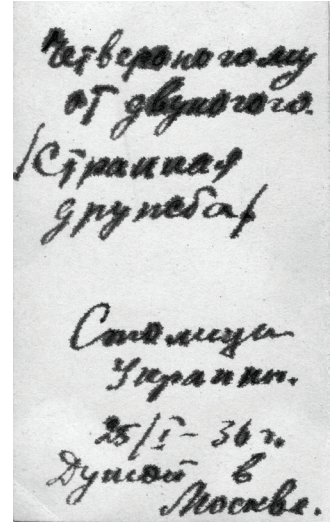 Четвероногому
от двуногого.
/Странная
дружба/
Столица
Украины.
25/I – 36 г.
Душой в
Москве.